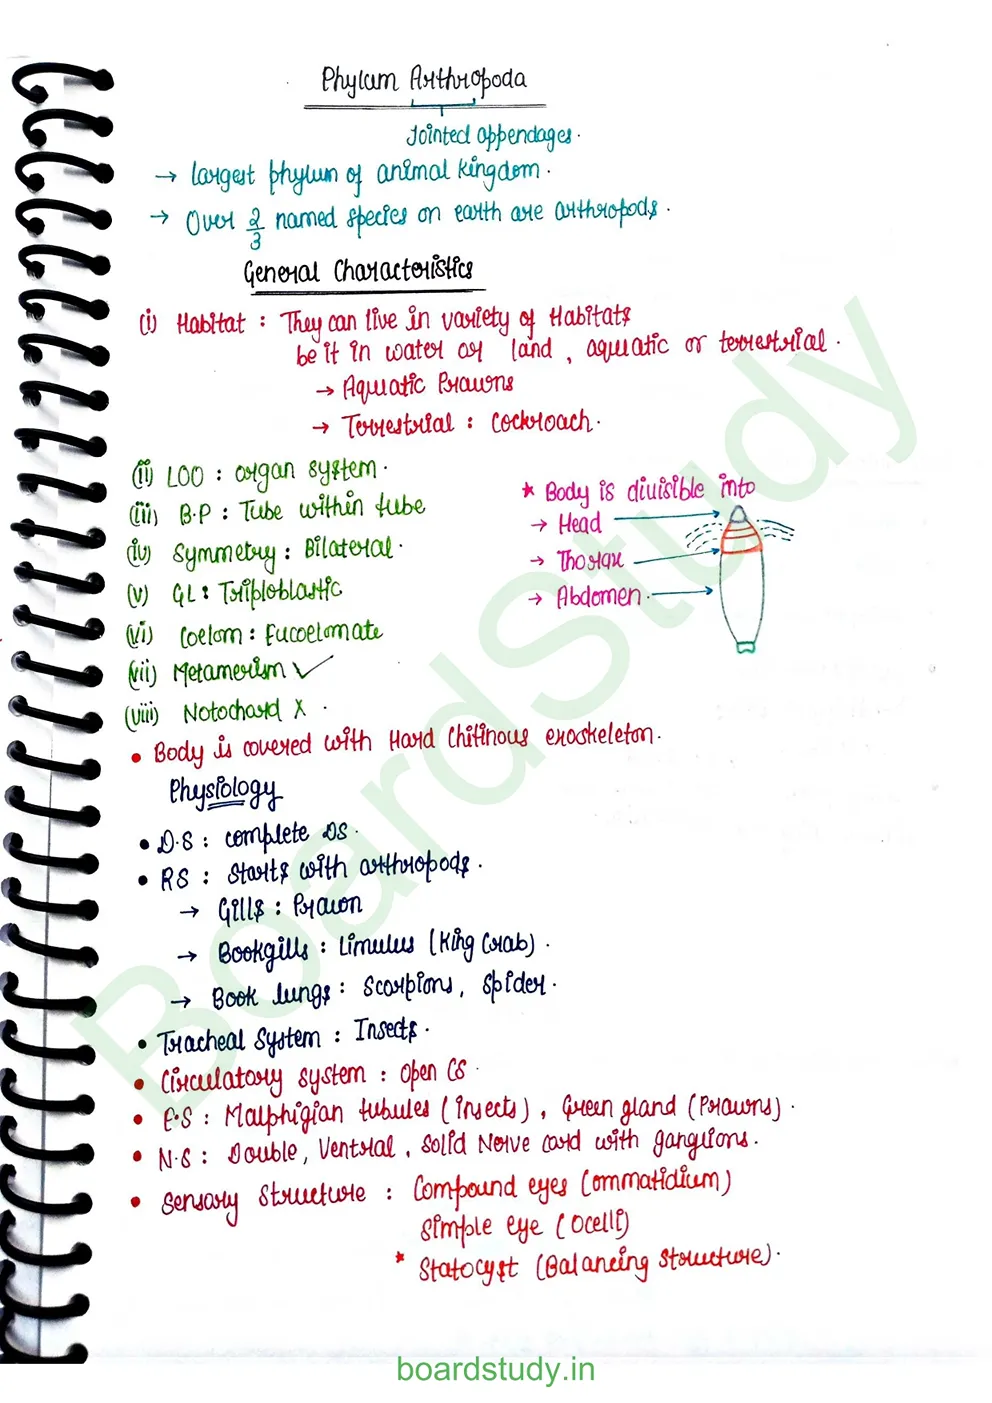 Phylum Arthropoda
Jointed appendages.
→ Largest phylum of animal kingdom.
→ Over 2/3 named species on earth are arthropods.
General Characteristics
(i) Habitat : They can live in variety of Habitats
be it in water or land, aquatic or terrestrial.
→ Aquatic Prawns
→ Terrestrial : Cockroach.
(ii) LOO : organ system.
(iii) B.P : Tube within tube
(iv) Symmetry : Bilateral.
(v) GL : Triploblastic
(vi) Coelom : Eucoelomate
(vii) Metamerism ✓
(viii) Notochord X .
* Body is divisible into
→ Head
→ Thorax
→ Abdomen.
• Body is covered with Hard Chitinous exoskeleton.
Physiology
• D.S : complete DS.
• RS : Starts with arthropods.
→ Gills : Prawn
→ Bookgills : Limulus (King Crab).
→ Book lungs : Scorpions, Spider.
• Tracheal System : Insects.
• Circulatory system : open CS.
• E.S : Malphigian tubules (insects), Green gland (Prawns).
• N.S : Double, Ventral, Solid Nerve cord with ganglions.
• Sensory Structure : Compound eyes (ommatidium)
Simple eye (Ocelli)
* Statocyst (Balancing structure).
BoardStudy
boardstudy.in